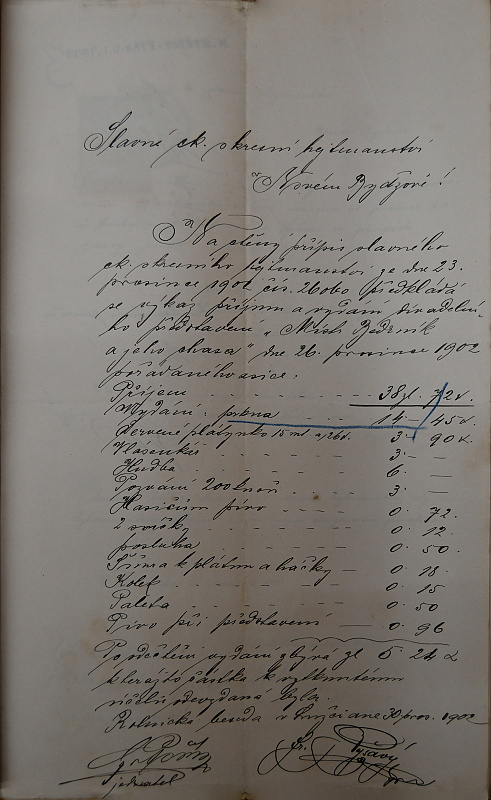 Slavné ck. okresní hejtmanství
v Novém Bydžově!
Na ctěný přípis slavného
ck. okresního hejtmanství ze dne 23.
prosince 1902 čís. 26060 předkládá
se výkaz příjmu a vydání divadelní-
ho představení „Mistr Bednřík
a jeho chasa" dne 26. prosince 1902
pořádaného sice:
Příjem 38 zl. 72 k.
Vydání: prkna 14 - 45 k.
Červené plátynko 15 mt. 3 - 90 k.
Vlásenkář 3 - —
Hudba 6 - —
Pozvání 200 3 - —
Hasičům pivo 0 - 72
2 svíčky 0 - 12
posluha 0 - 50
Šňůra k plátnu a háčky — 0 - 18
Kolek 0 - 15
Paleta 0 - 50
Pivo při představení — 0 - 96
Po odečtení vydání zbývá zl 5 - 24 k
kterážto částka k vytknutému
účelu odevzdaná byla.
Rolnická beseda v 30 pros. 1902
jednatel